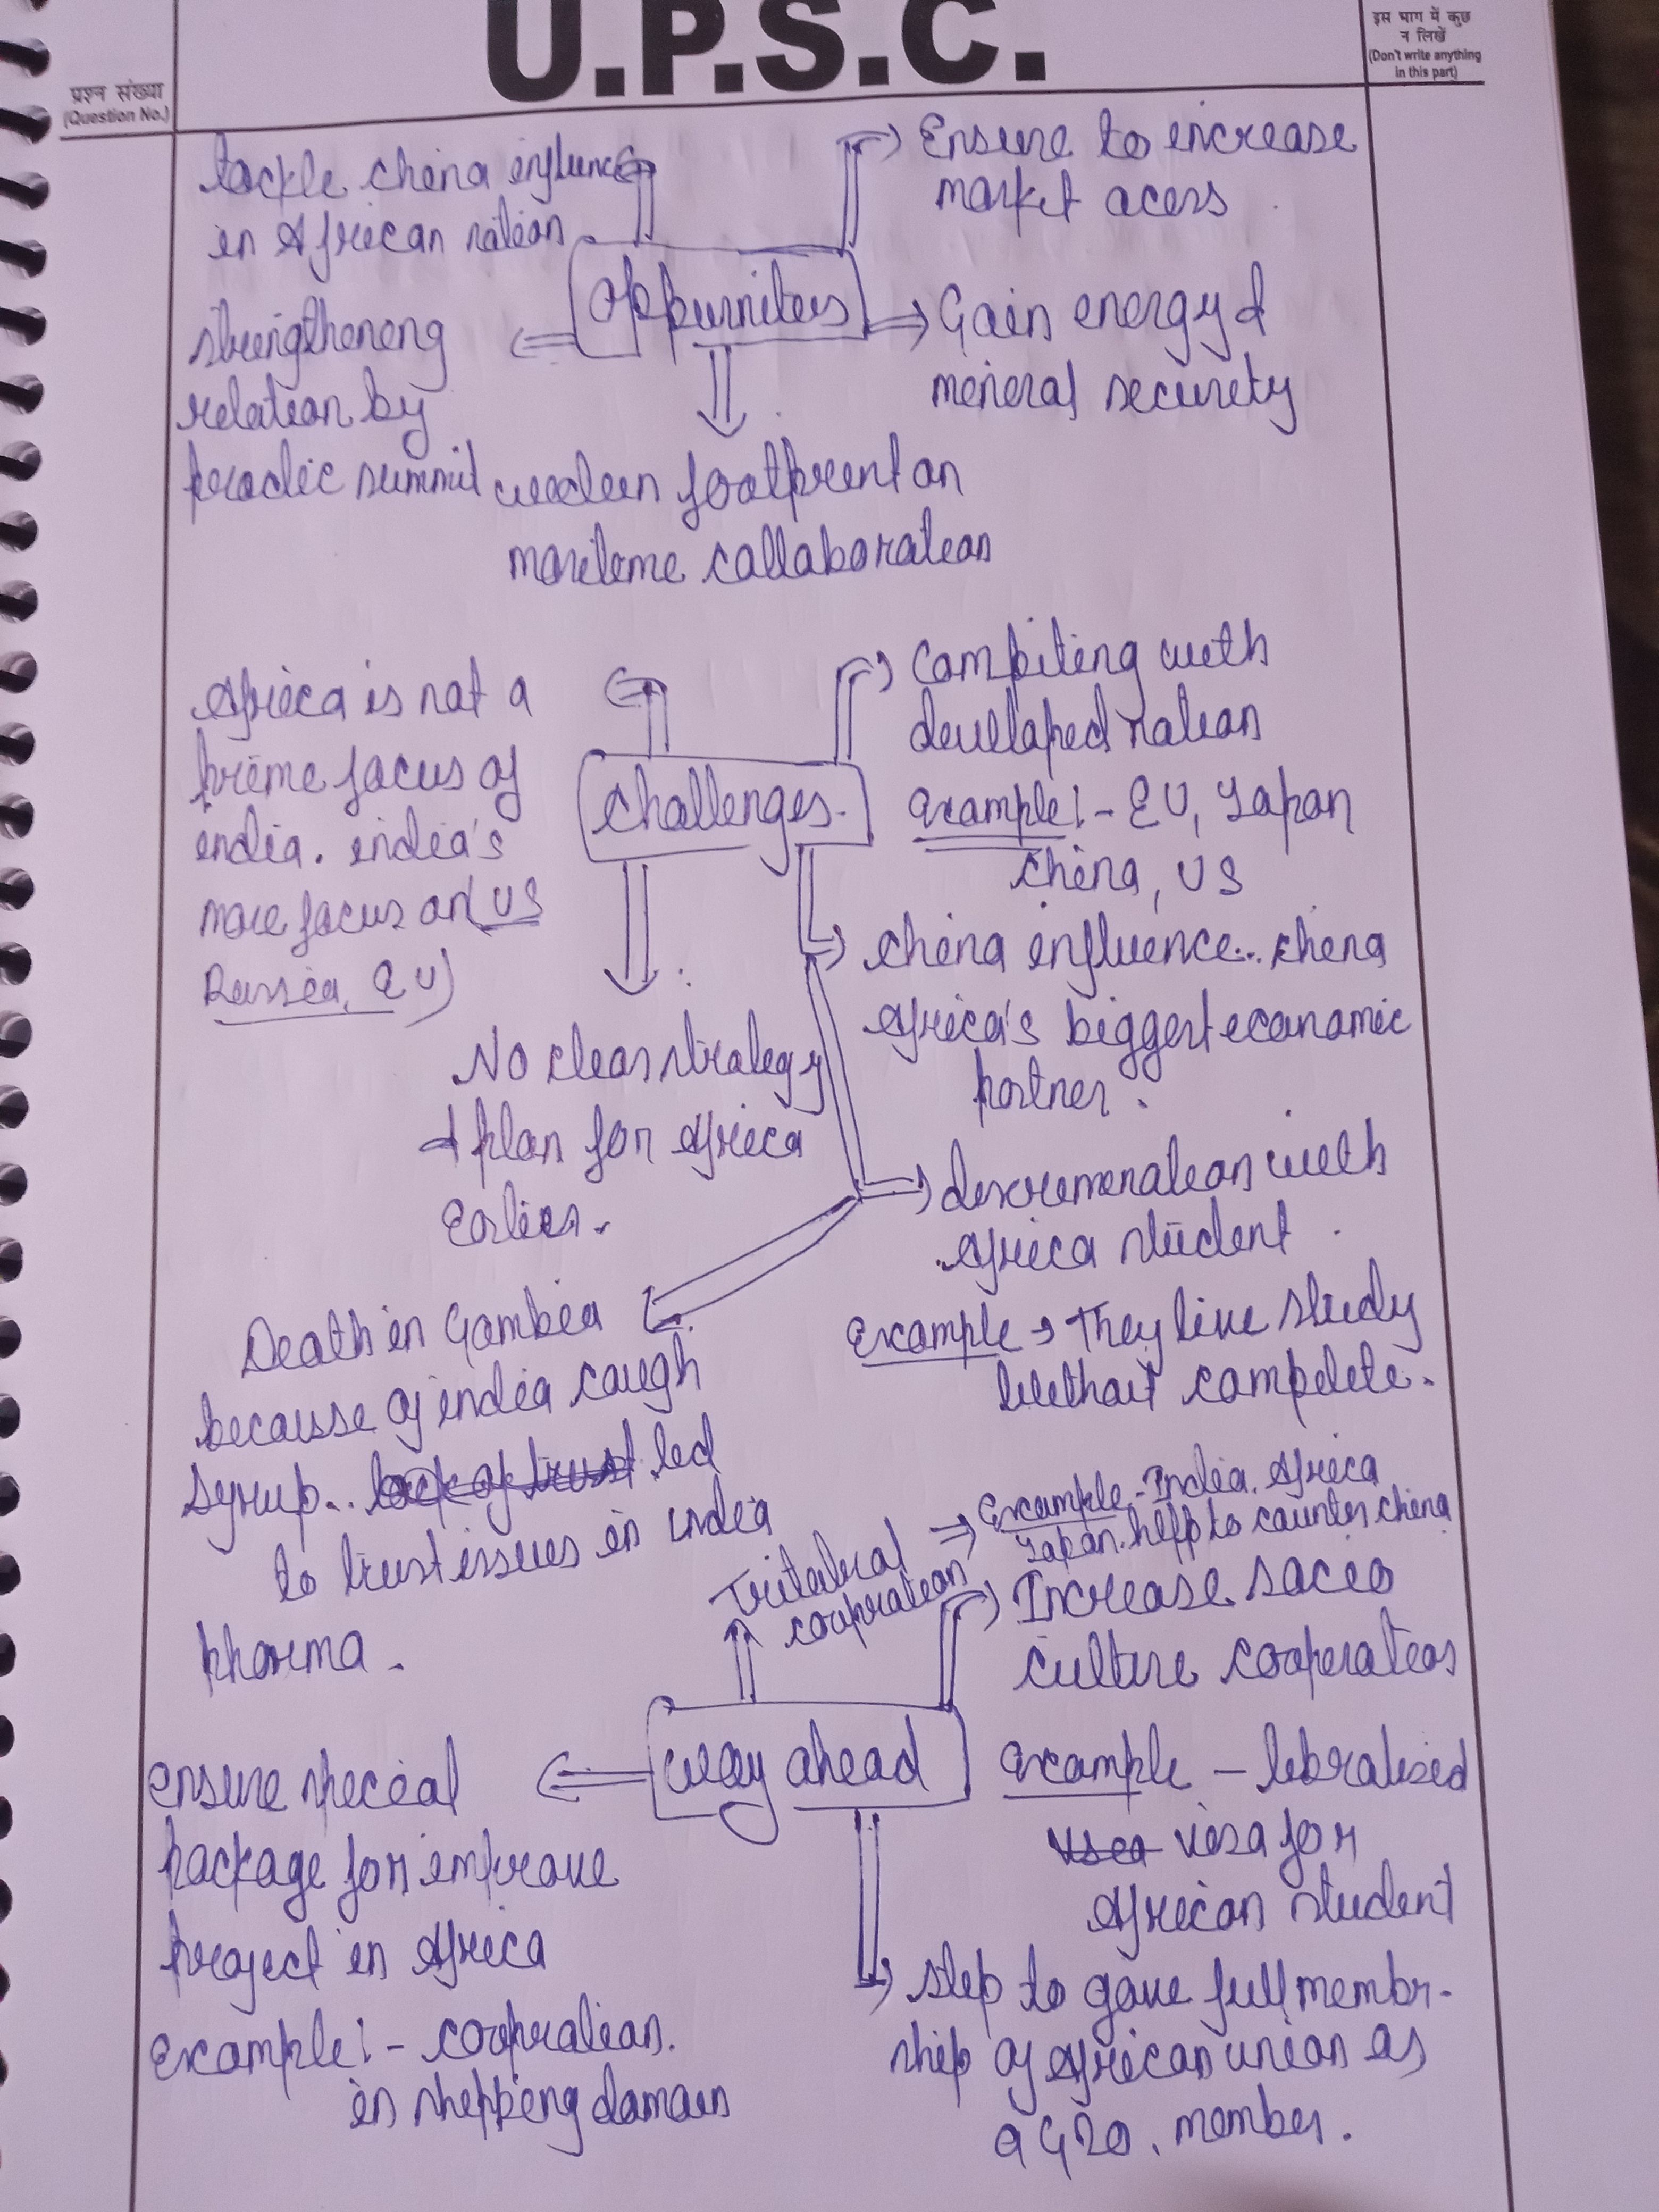 U.P.S.C.
प्रश्न संख्या
(Question No.)
इस भाग में कुछ
न लिखें
(Don't write anything
in this part)
tackle china influence
in African nation
Ensure to increase
market acess
Oppurnities
strengthening
relation by
perodic summit
Gain energy &
mineral security
widen footprint on
maritime collaboration
Africa is not a
prime focus of
india. india's
more focus on (US
Russia, EU)
Challenges.
Compiting with
develloped nation
example:- EU, Japan
China, US
china influence.. china
Africa's biggest economic
partner.
No clear strategy
& plan for Africa
Earlier.
discremination with
Africa student.
Example → They live study
without complete.
Death in Gambia
because of india caugh
syrup.. lack of trust led
to trust issues in india
pharma.
Tritalral
cooprateon
Example - India, Africa
Japan. help to counter china
Increase socio
culture cooperateos
way ahead
example - lebralised
visa visa for
African student
ensure special
package for improve
project in Africa
Example:- cooprateon.
in shipping domain
step to gave full membr-
ship of African union as
a G20. member.